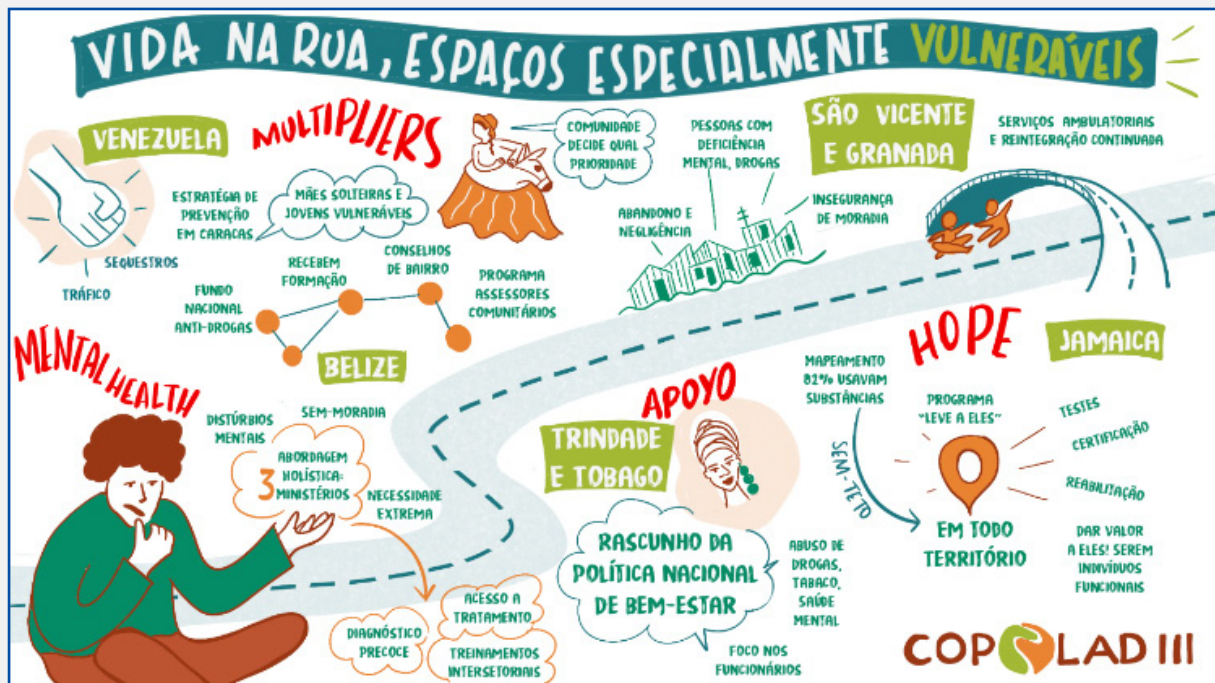 VIDA NA RUA, ESPAÇOS ESPECIALMENTE VULNERÁVEIS
VENEZUELA
MULTIPLIERS
ESTRATÉGIA DE
PREVENÇÃO
EM CARACAS
MÃES SOLTEIRAS E
JOVENS VULNERÁVEIS
COMUNIDADE
DECIDE QUAL
PRIORIDADE
SEQUESTROS
TRÁFICO
FUNDO
NACIONAL
ANTI-DROGAS
RECEBEM
FORMAÇÃO
CONSELHOS
DE BAIRRO
PROGRAMA
ASSESSORES
COMUNITÁRIOS
PESSOAS COM
DEFICIÊNCIA
MENTAL, DROGAS
ABANDONO E
NEGLIGÊNCIA
INSEGURANÇA
DE MORADIA
SÃO VICENTE
E GRANADA
SERVIÇOS AMBULATORIAIS
E REINTEGRAÇÃO CONTINUADA
MENTAL HEALTH
BELIZE
DISTÚRBIOS
MENTAIS
SEM-MORADIA
3
ABORDAGEM
HOLÍSTICA:
MINISTÉRIOS
NECESSIDADE
EXTREMA
DIAGNÓSTICO
PRECOCE
ACESSO A
TRATAMENTO
TREINAMENTOS
INTERSETORIAIS
APOYO
TRINDADE
E TOBAGO
RASCUNHO DA
POLÍTICA NACIONAL
DE BEM-ESTAR
ABUSO DE
DROGAS,
TABACO,
SAÚDE
MENTAL
FOCO NOS
FUNCIONÁRIOS
HOPE
JAMAICA
MAPEAMENTO
82% USAVAM
SUBSTÂNCIAS
SEM-TETO
PROGRAMA
"LEVE A ELES"
TESTES
CERTIFICAÇÃO
REABILITAÇÃO
EM TODO
TERRITÓRIO
DAR VALOR
A ELES! SEREM
INDIVÍDUOS
FUNCIONAIS
COPOLAD III